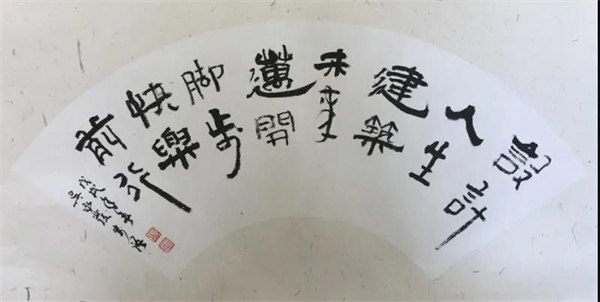 設計
人生
建築
未來
邁開
脚步
快樂
前行
戊戌